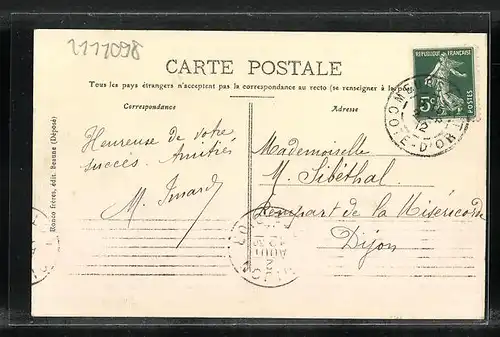 2111098
CARTE POSTALE
Tous les pays étrangers n'acceptent pas la correspondance au recto (se renseigner à la
Correspondance
Adresse
REPUBLIQUE FRANÇAISE
5c
POSTES
COTE-D'OR
Heureuse de votre
succès. Amitiés
M.
Mademoiselle
M. Sibéthal
Rempart de la Miséricorde
Dijon
Ronco frères, édit. Beaune (Déposé)
AOUT